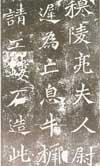 穆陵亮夫人尉
遲為亡息牛橛
請工鏤石造此